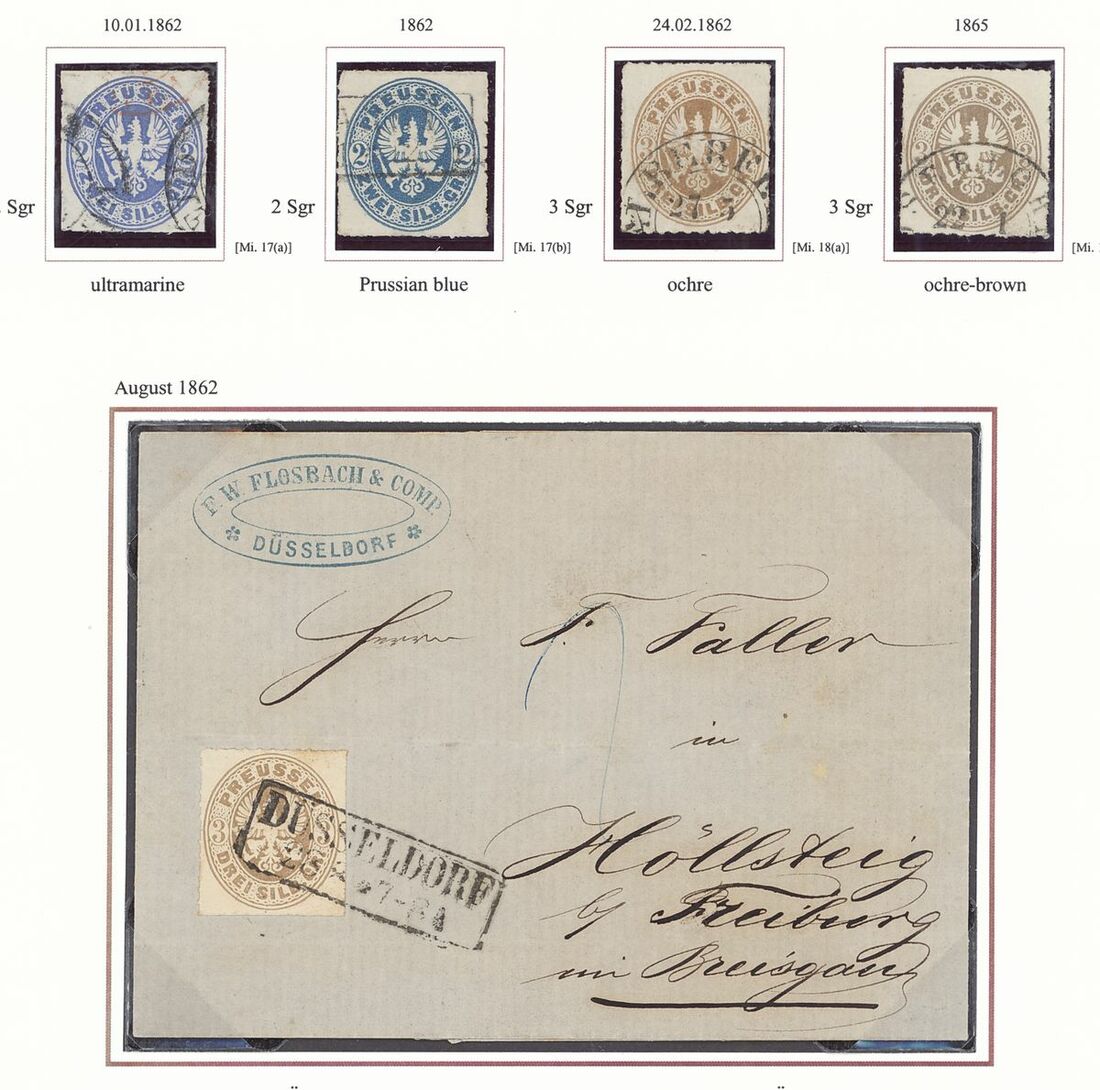 10.01.1862 1862 24.02.1862 1865
PREUSSEN 2 2 ZWEI SILB.GR.
PREUSSEN 2 2 ZWEI SILB.GR.
PREUSSEN 3 SILB
27 5
PREUSSEN 3 DREI SILB.GR.
22
Sgr 2 Sgr 3 Sgr 3 Sgr
[Mi. 17(a)] [Mi. 17(b)] [Mi. 18(a)] [Mi.
ultramarine Prussian blue ochre ochre-brown
August 1862
F. W. FLOSBACH & COMP.
DÜSSELDORF
Herrn F. Faller
in
PREUSSEN
3 DREI SILB.GR.
DÜSSELDORF
Höllsteig
b/ Freiburg
im Breisgau